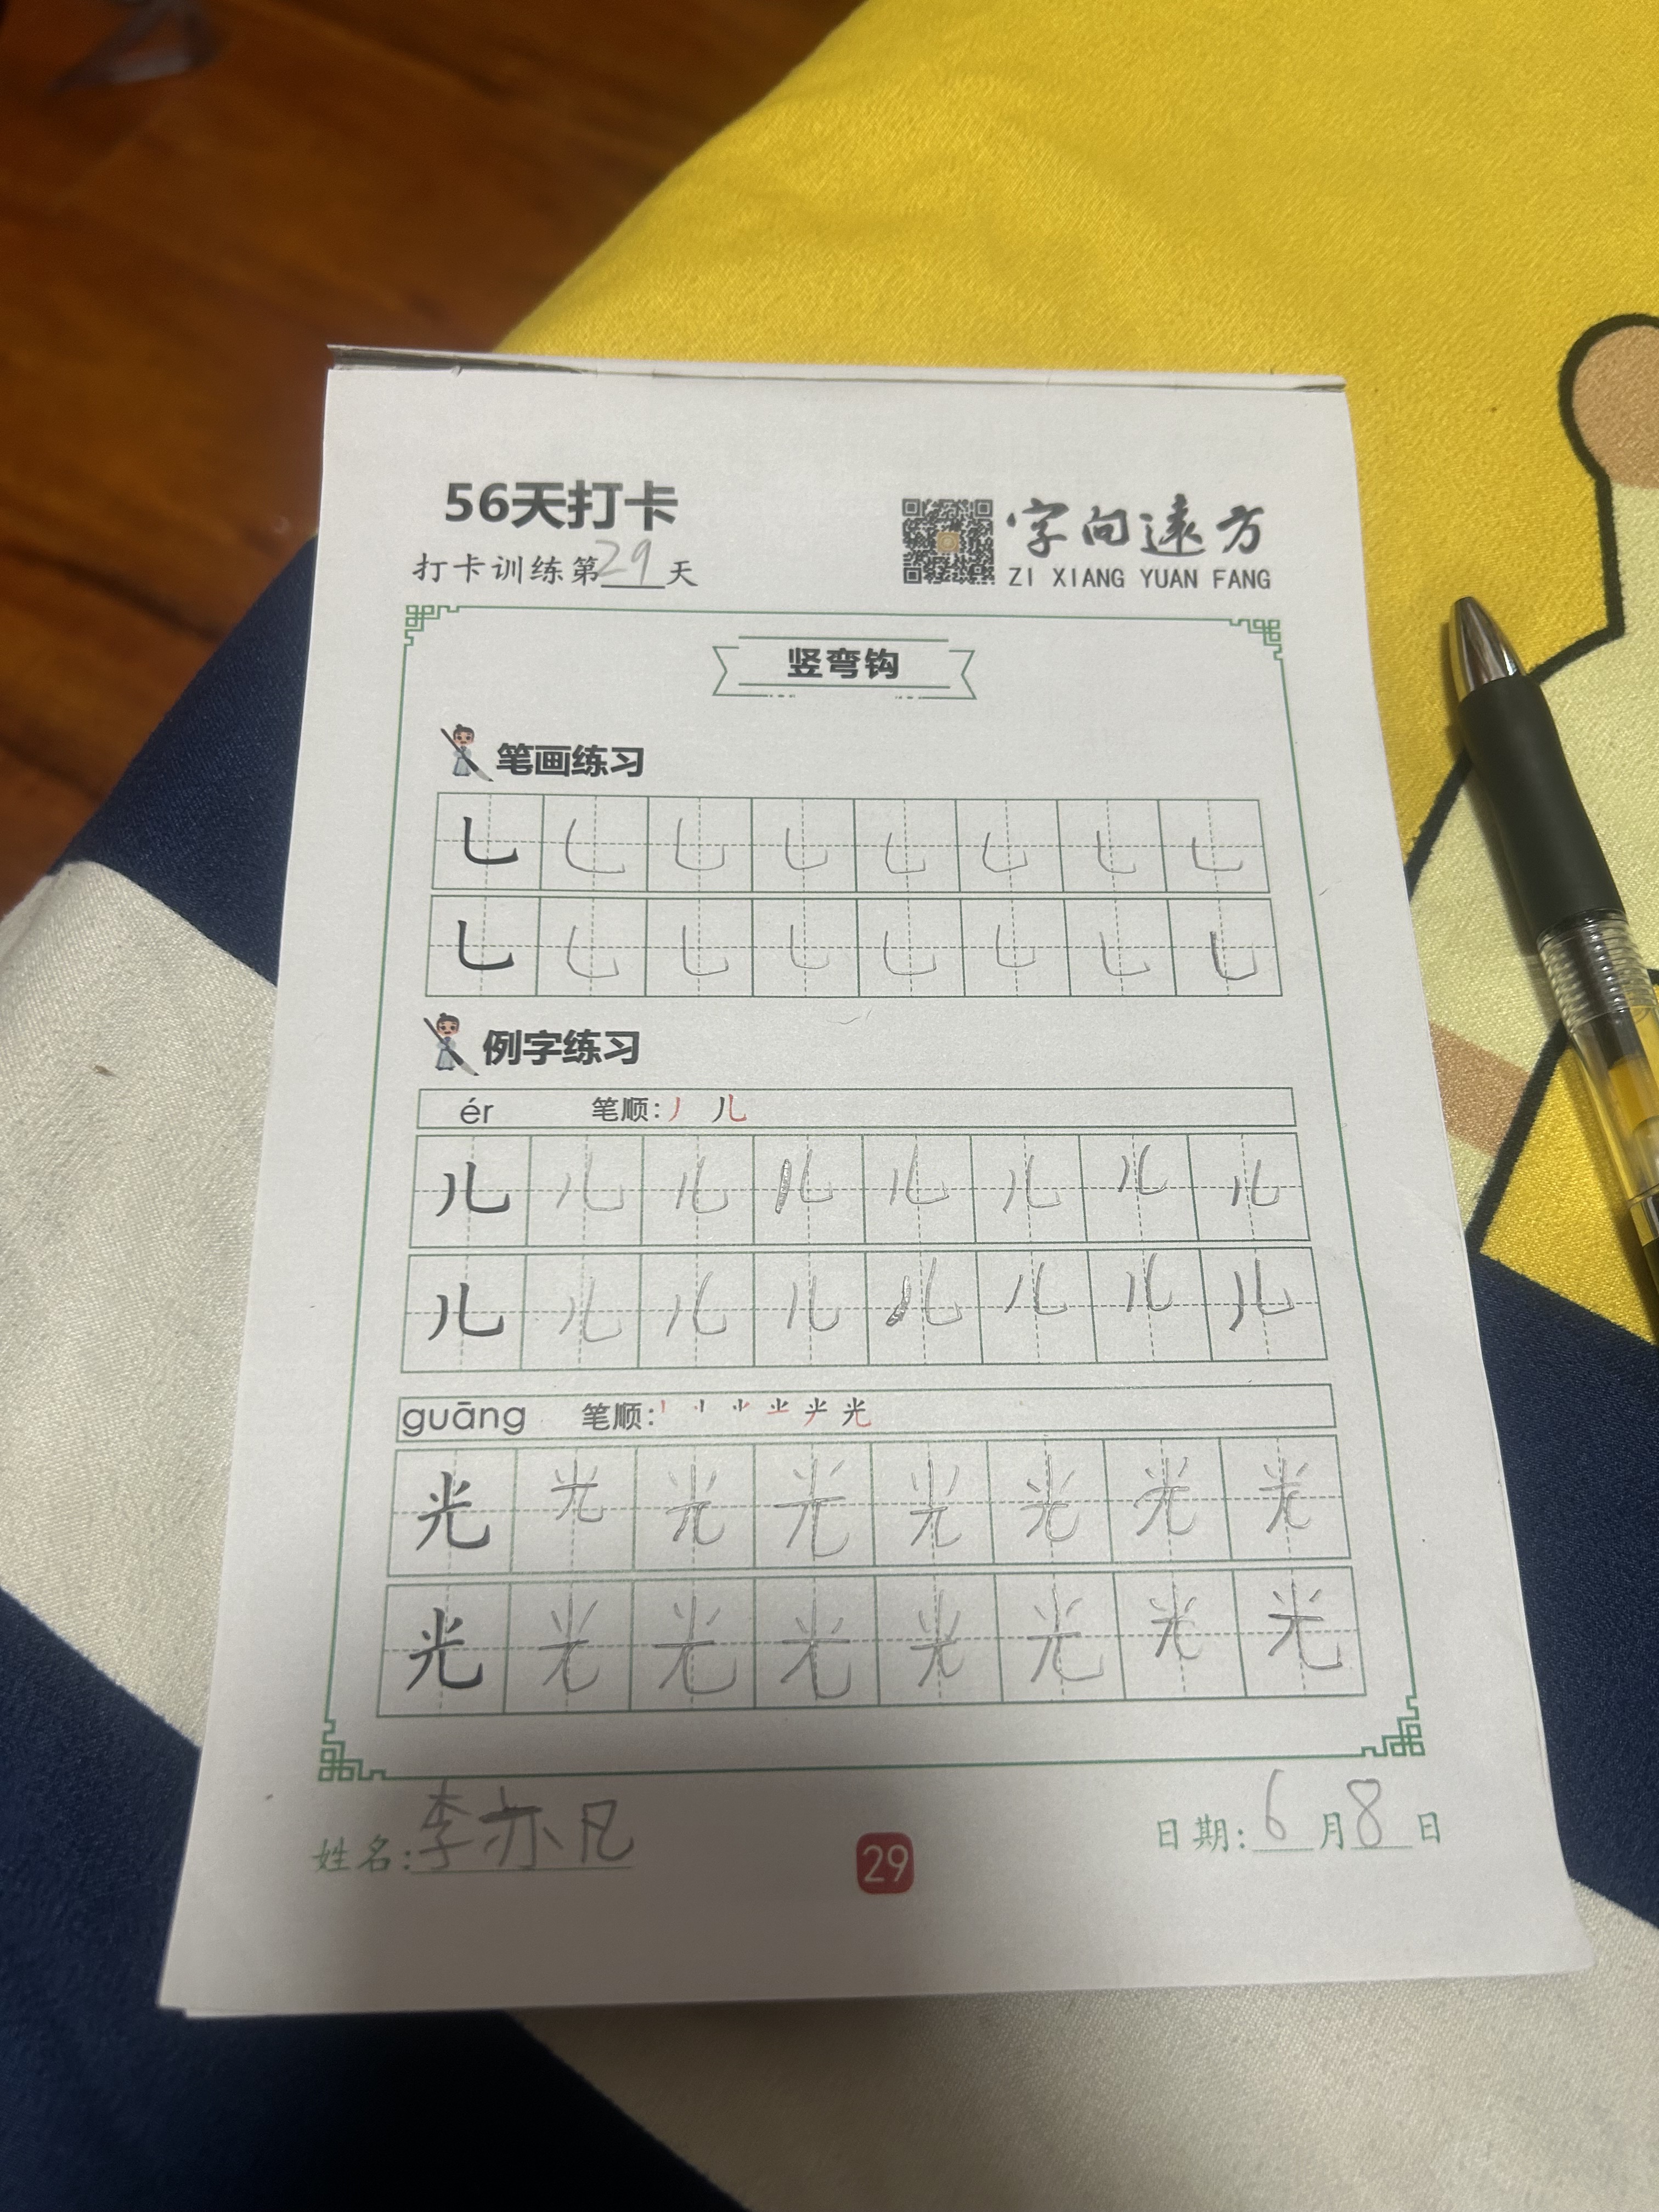 56天打卡
字向远方
打卡训练第29天
ZI XIANG YUAN FANG
竖弯钩
笔画练习
乚 乚 乚 乚 乚 乚 乚 乚
乚 乚 乚 乚 乚 乚 乚 乚
例字练习
ér 笔顺: 丿 儿
儿 儿 儿 儿 儿 儿 儿 儿
儿 儿 儿 儿 儿 儿 儿 儿
guāng 笔顺: 光
光 光 光 光 光 光 光 光
光 光 光 光 光 光 光 光
姓名: 李亦凡
29
日期: 6月8日